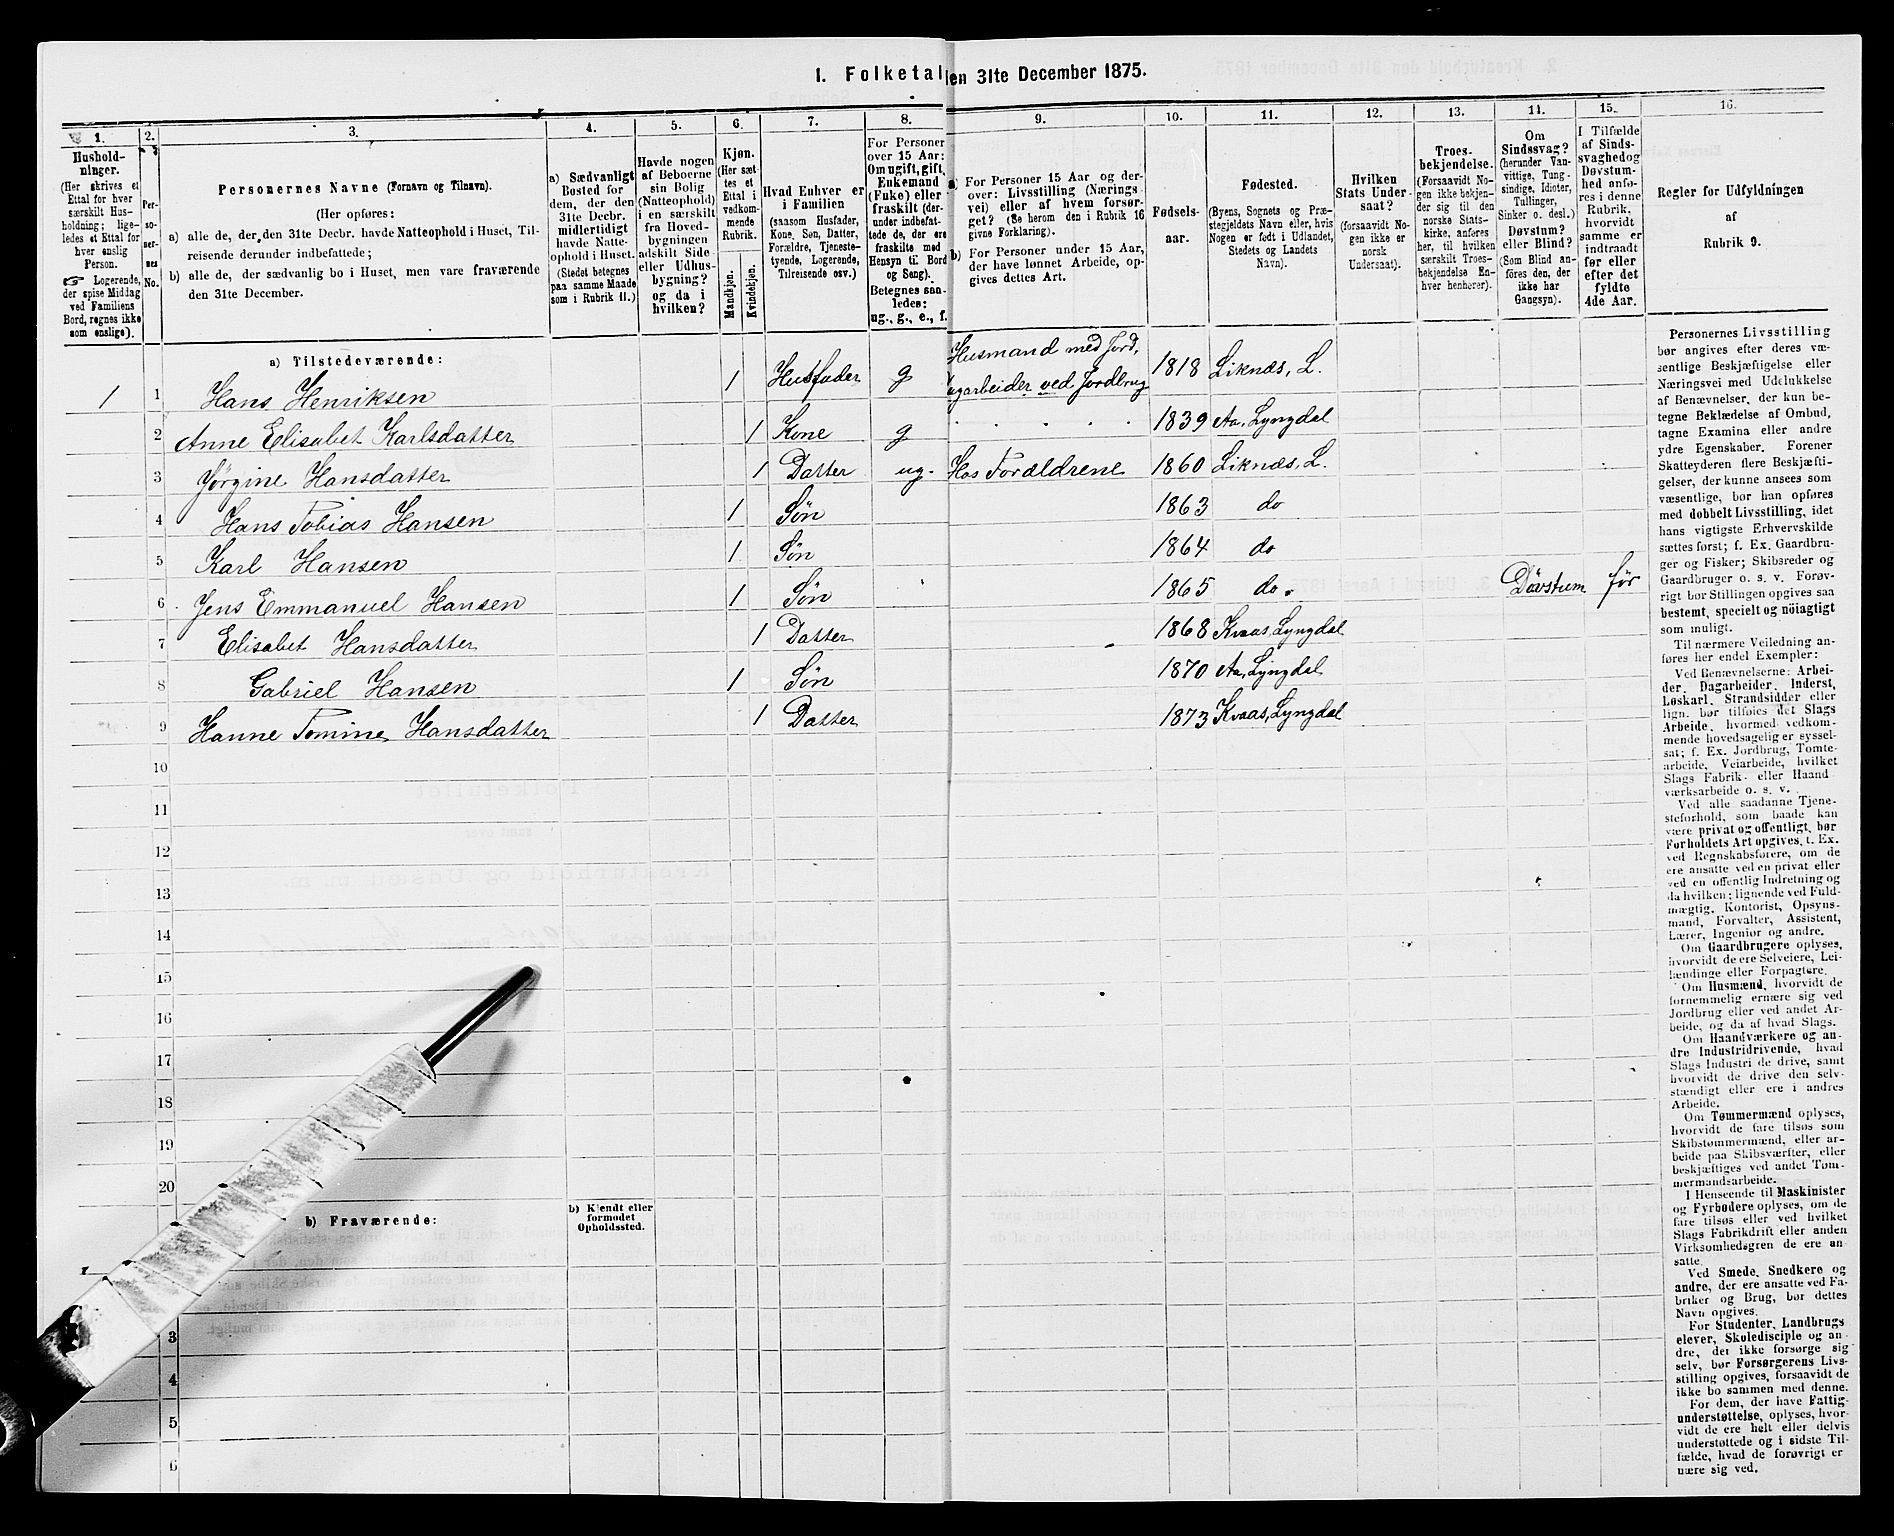 1. Folketal
en 31te December 1875.
1.
2.
3.
4.
5.
6.
7.
8.
9.
10.
11.
12.
13.
14.
15.
16.
Hushold-
ninger.
(Her skrives et
Ettal for hver
særskilt Hus-
holdning; lige-
ledes et Ettal for
hver enslig
Person.
Logerende,
der spise Middag
ved Familiens
Bord, regnes ikke
som enslige).
Per-
so-
ner-
nes
No.
Personernes Navne (Fornavn og Tilnavn).
(Her opføres:
a) alle de, der, den 31te Decbr. havde Natteophold i Huset, Til-
reisende derunder indbefattede;
b) alle de, der sædvanlig bo i Huset, men vare fraværende
den 31te December.
a) Sædvanligt
Bosted for
dem, der den
31te Decbr.
midlertidigt
havde Natte-
ophold i Huset.
(Stedet betegnes
paa samme Maade
som i Rubrik 11.)
Havde nogen
af Beboerne
sin Bolig
(Natteophold)
i en særskilt
fra Hoved-
bygningen
adskilt Side-
eller Udhus-
bygning?
og da i
hvilken?
Kjøn.
(Her sæt-
tes et
Ettal i
vedkom-
mende
Rubrik.
Mandkjøn.
Kvindekjøn.
Hvad Enhver er
i Familien
(saasom Husfader,
Kone, Søn, Datter,
Forældre, Tjeneste-
tyende, Logerende,
Tilreisende osv.)
For Personer
over 15 Aar:
Om ugift, gift,
Enkemand
(Enke) eller
fraskilt (der-
under indbefat-
tede de, der ere
fraskilte med
Hensyn til Bord
og Seng).
Betegnes saa-
ledes:
ug., g., e., f.
a) For Personer 15 Aar og der-
over: Livsstilling (Nærings-
vei) eller af hvem forsør-
get? (Se herom den i Rubrik 16
givne Forklaring).
b) For Personer under 15 Aar,
der have lønnet Arbeide, op-
gives dettes Art.
Fødsels-
aar.
Fødested.
(Byens, Sognets og Præ-
stegjeldets Navn eller, hvis
Nogen er født i Udlandet,
Stedets og Landets
Navn).
Hvilken
Stats Under-
saat?
(forsaavidt No-
gen ikke er
norsk
Undersaat).
Troes-
bekjendelse.
(Forsaavidt No-
gen ikke bekjen-
der sig til den
norske Stats-
kirke, anføres
her, til hvilken
særskilt Troes-
bekjendelse En-
hver henhører).
Om
Sindssvag?
(herunder Van-
vittige, Tung-
sindige, Idioter,
Tullinger,
Sinker o. desl.)
Døvstum?
eller Blind?
(Som Blind an-
føres den, der
ikke har
Gangsyn).
I Tilfælde
af Sinds-
svaghedog
Døvstum-
hed anfø-
res i denne
Rubrik,
hvorvidt
samme er
indtraadt
før eller
efter det
fyldte
4de Aar.
Regler for Udfyldningen
af
Rubrik 9.
a) Tilstedeværende:
1 1 Hans Henriksen 1 Husfader g Husmand med Jord, agarbeider ved Jordbrug 1818 Liknæs, L.
2 Anne Elisabet Karlsdatter 1 Kone g 1839 Aa, Lyngdal
3 Jørgine Hansdatter 1 Datter ug. Hos Forældrene 1860 Liknæs, L.
4 Hans Tobias Hansen 1 Søn 1863 do
5 Karl Hansen 1 Søn 1864 do
6 Jens Emmanuel Hansen 1 Søn 1865 do. Døvstum før
7 Elisabet Hansdatter 1 Datter 1868 Kvaas, Lyngdal
8 Gabriel Hansen 1 Søn 1870 Aa, Lyngdal
9 Hanne Tomine Hansdatter 1 Datter 1873 Kvaas, Lyngdal
10
11
12
13
14
15
16
17
18
19
20
b) Fraværende:
b) Kjendt eller
formodet
Opholdssted.
3
4
5
6
Personernes Livsstilling
bør angives efter deres væ-
sentlige Beskjæftigelse eller
Næringsvei med Udelukkelse
af Benævnelser, der kun be-
tegne Beklædelse af Ombud,
tagne Examina eller andre
ydre Egenskaber. Forener
Skatteyderen flere Beskjæfti-
gelser, der kunne ansees som
væsentlige, bør han opføres
med dobbelt Livsstilling, idet
hans vigtigste Erhvervskilde
sættes først; f. Ex. Gaardbru-
ger og Fisker; Skibsreder og
Gaardbruger o. s. v. Forøv-
rigt bør Stillingen opgives saa
bestemt, specielt og nöiagtigt
som muligt.
Til nærmere Veiledning an-
føres her endel Exempler:
Ved Benævnelserne: Arbei-
der, Dagarbeider, Inderst,
Løskarl, Strandsidder eller
lign. bør tilføies det Slags
Arbeide, hvormed vedkom-
mende hovedsagelig er syssel-
sat; f. Ex. Jordbrug, Tomte-
arbeide, Veiarbeide, hvilket
Slags Fabrik- eller Haand-
værksarbeide o. s. v.
Ved alle saadanne Tjene-
steforhold, som baade kan
være privat og offentligt, bør
Forholdets Art opgives, t. Ex.
ved Regnskabsførere, om de
ere ansatte ved en privat eller
ved en offentlig Indretning og
da hvilken; lignende ved Fuld-
mægtig, Kontorist, Opsyns-
mand, Forvalter, Assistent,
Lærer, Ingeniør og andre.
Om Gaardbrugere oplyses,
hvorvidt de ere Selveiere, Lei-
lændinge eller Forpagtere.
Om Husmænd, hvorvidt de
fornemmelig ernære sig ved
Jordbrug eller ved andet Ar-
beide, og da af hvad Slags.
Om Haandværkere og an-
dre Industridrivende, hvad
Slags Industri de drive, samt
hvorvidt de drive den selv-
stændigt eller ere i andres
Arbeide.
Om Tømmermænd oplyses,
hvorvidt de fare tilsøs som
Skibstømmermænd, eller ar-
beide paa Skibsværfter, eller
beskjæftiges ved andet Tøm-
mermandsarbeide.
I Henseende til Maskinister
og Fyrbødere oplyses, om de
fare tilsøs eller ved hvilket
Slags Fabrikdrift eller anden
Virksomhedsgren de ere an-
satte.
Ved Smede, Snedkere og
andre, der ere ansatte ved Fa-
briker og Brug, bør dettes
Navn opgives.
For Studenter, Landbrugs-
elever, Skoledisciple og an-
dre, det ikke forsørge sig
selv, bør Forsørgerens Livs-
stilling opgives, forsaavidt de
ikke bo sammen med denne.
For dem, der have Fattig-
understøttelse, oplyses, hvor-
vidt de ere helt eller delvis
understøttede og i sidste Til-
fælde, hvad de forøvrigt er-
nære sig ved.